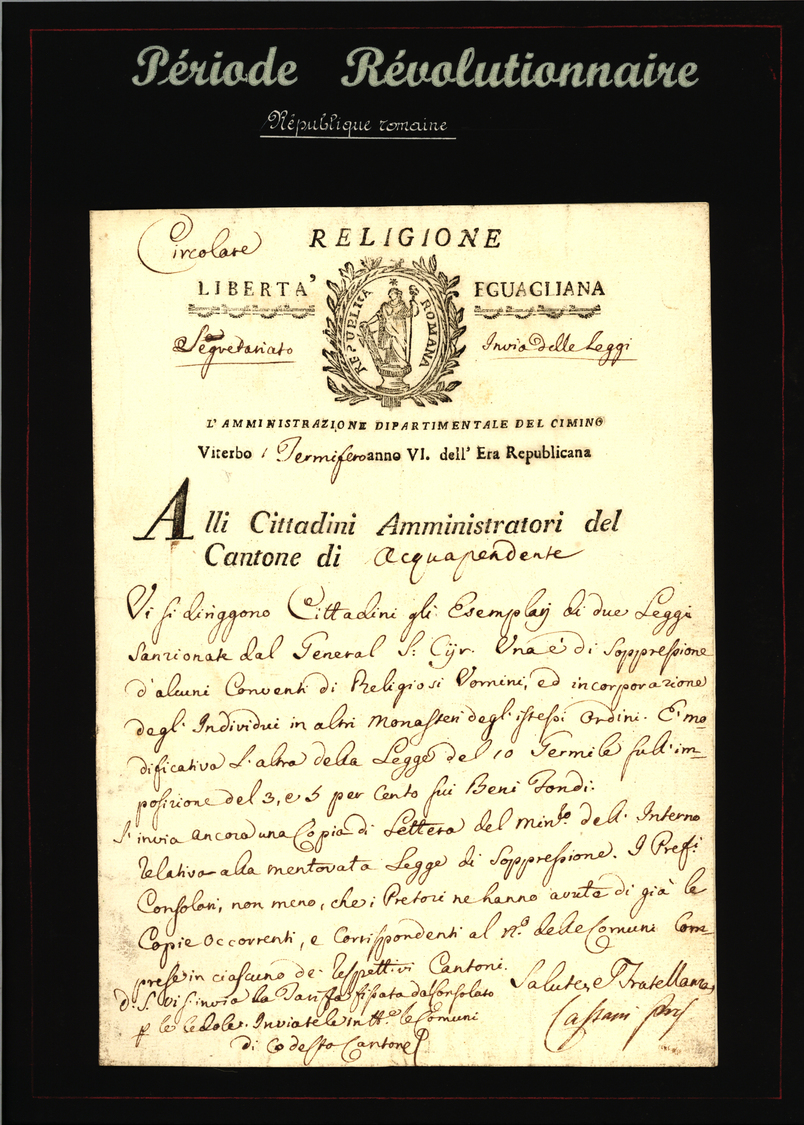 Période Révolutionnaire
République romaine
Circolare
RELIGIONE
LIBERTA' EGUAGLIANA
REPUBLICA ROMANA
Segretariato
Invio delle Leggi
L'AMMINISTRAZIONE DIPARTIMENTALE DEL CIMINO
Viterbo 1 Termifero anno VI. dell' Era Republicana
Alli Cittadini Amministratori del
Cantone di Acquapendente
Vi si diriggono Cittadini gli Esemplarj di due Leggi
Sanzionate dal General S: Cyr. Una è di Soppressione
d'alcuni Conventi di Religiosi Uomini, ed incorporazione
degl' Individui in altri Monasteri degl' istessi Ordini. E' mo-
dificativa l'altra della Legge del 10 Termile sull' im-
posizione del 3, e 5 per Cento sui Beni Fondi.
S' invia ancora una Copia di Lettera del Min.ro dell' Interno
relativa alla mentovata Legge di Soppressione. I Pref.i
Consolari, non meno, che i Pretori ne hanno avute di già le
Copie Occorrenti, e Corrispondenti al N.o delle Comuni Com-
prese in ciascuno de' rispettivi Cantoni.
Salute, e Fratellanza
P. S. Vi s'invia la Tariffa fissata dal Consolato
p le Cedole. Inviatela in tt.e le Comuni
di Codesto Cantone